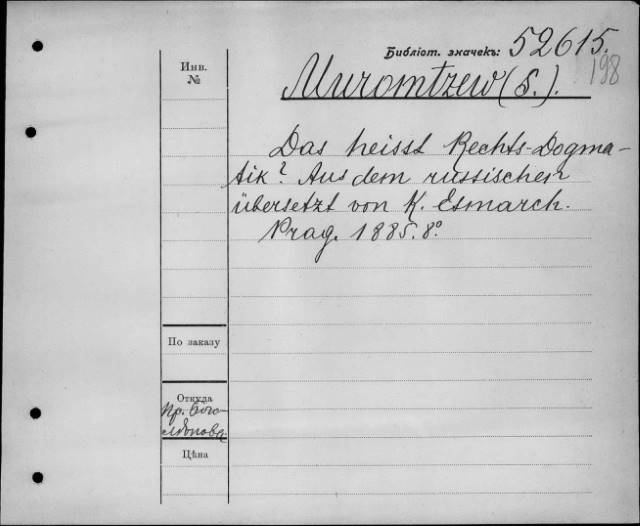 Библіот. значекъ: 52615.
198
Инв.
№
Muromtzew (S.).
Das heisst Rechts-Dogma-
tik? Aus dem russischen
übersetzt von K. Esmarch.
Prag. 1885. 8°
По заказу
Откуда
Пр. Бого-
лѣпова
Цѣна